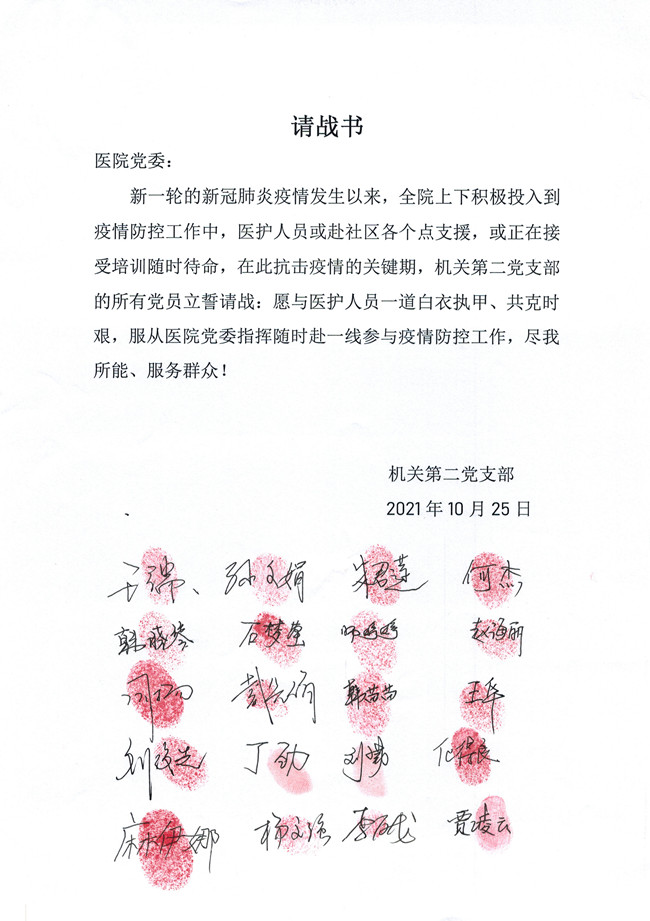 请战书
医院党委：
新一轮的新冠肺炎疫情发生以来，全院上下积极投入到
疫情防控工作中，医护人员或赴社区各个点支援，或正在接
受培训随时待命，在此抗击疫情的关键期，机关第二党支部
的所有党员立誓请战：愿与医护人员一道白衣执甲、共克时
艰，服从医院党委指挥随时赴一线参与疫情防控工作，尽我
所能、服务群众！
机关第二党支部
2021 年 10 月 25 日
孙文娟 朱君莲 何杰
韩晓琴 石梦莹 师婷婷 赵海丽
韩苗苗 王华
丁劲 刘勇
麻伊娜 杨文强 贾凌云